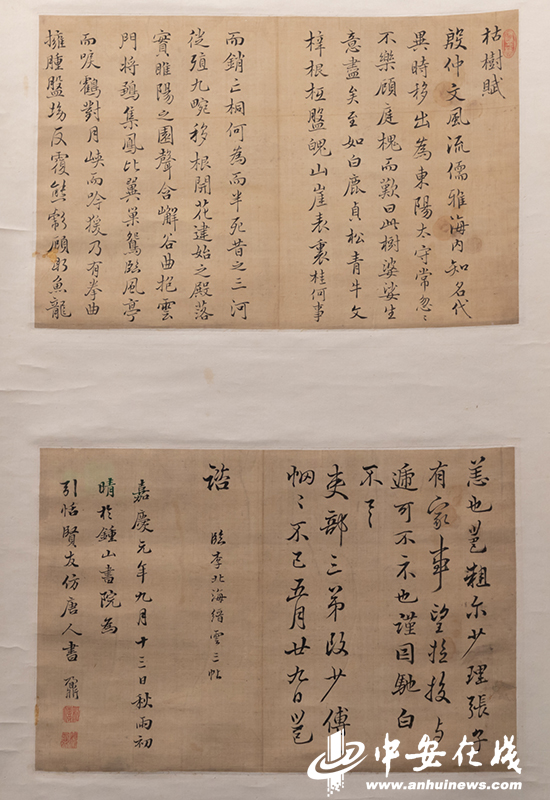 枯樹賦
殷仲文風流儒雅海内知名代
異時移出為東陽太守常忽〻
不樂顧庭槐而歎曰此樹婆娑生
意盡矣至如白鹿貞松青牛文
梓根柢盤魄山崖表裏桂何事
而銷亡桐何為而半死昔之三河
徙殖九畹移根開花建始之殿落
實睢陽之園聲含嶰谷曲抱雲
門將鶵集鳳比翼巢鴛臨風亭
而唳鶴對月峽而吟猿乃有拳曲
擁腫盤坳反覆熊彪顧盼魚龍
恙也邕尔少理張
有家事望投与
遞可不示也謹因馳白
不具
吏部三弟改少傅
悃〻不已五月廿九日邕
諮
臨李北海縉雲三帖
嘉慶元年九月十三日秋雨初
晴於鍾山書院為
引恬賢友仿唐人書 鼐
中安在线
www.anhuinews.com